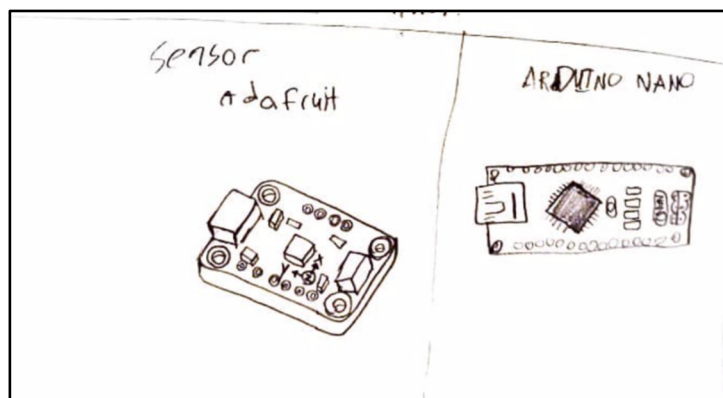 sensor
Adafruit
ARDUINO NANO
Y X
Z